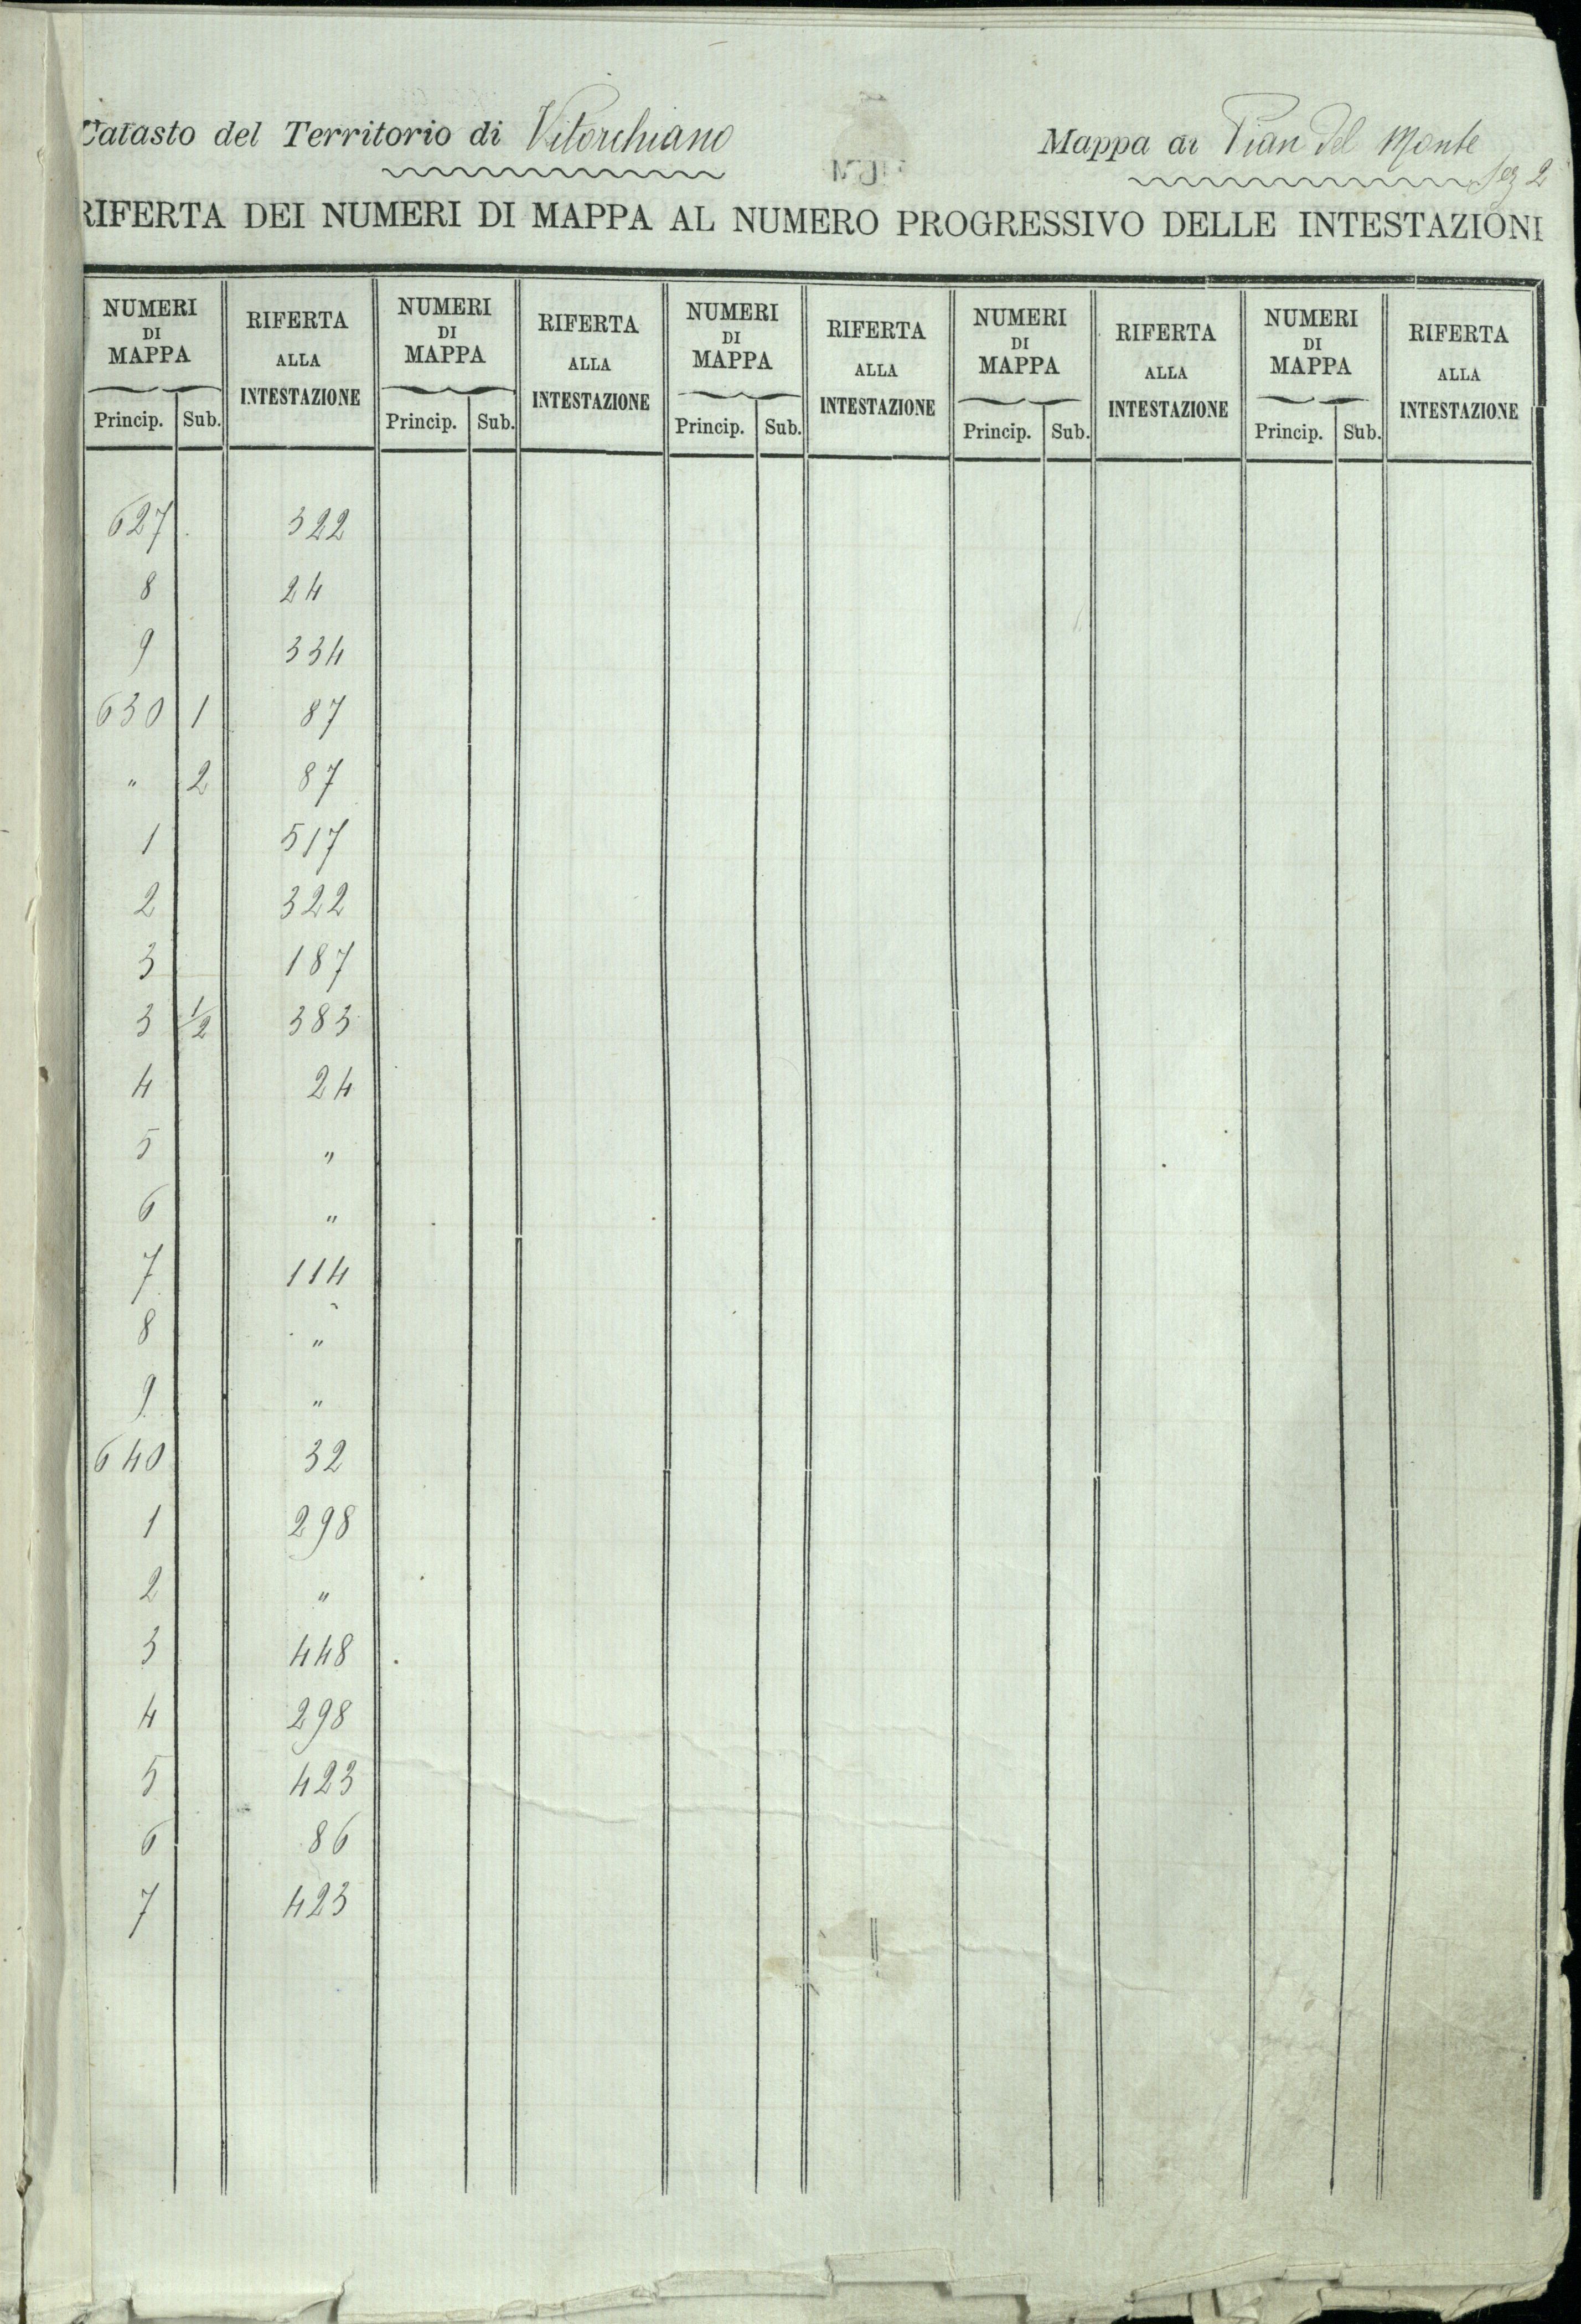 Catasto del Territorio di Vitorchiano
Mappa di Pian del Monte
Sez 2
RIFERTA DEI NUMERI DI MAPPA AL NUMERO PROGRESSIVO DELLE INTESTAZIONI
NUMERI DI MAPPA RIFERTA ALLA INTESTAZIONE NUMERI DI MAPPA RIFERTA ALLA INTESTAZIONE NUMERI DI MAPPA RIFERTA ALLA INTESTAZIONE NUMERI DI MAPPA RIFERTA ALLA INTESTAZIONE NUMERI DI MAPPA RIFERTA ALLA INTESTAZIONE
Princip. Sub. Princip. Sub. Princip. Sub. Princip. Sub. Princip. Sub.
627 322
8 24
9 334
630 1 87
" 2 87
1 517
2 322
3 187
3 1/2 383
4 24
5 "
6 "
7 114
8 "
9 "
640 32
1 298
2 "
3 448
4 298
5 423
6 86
7 423